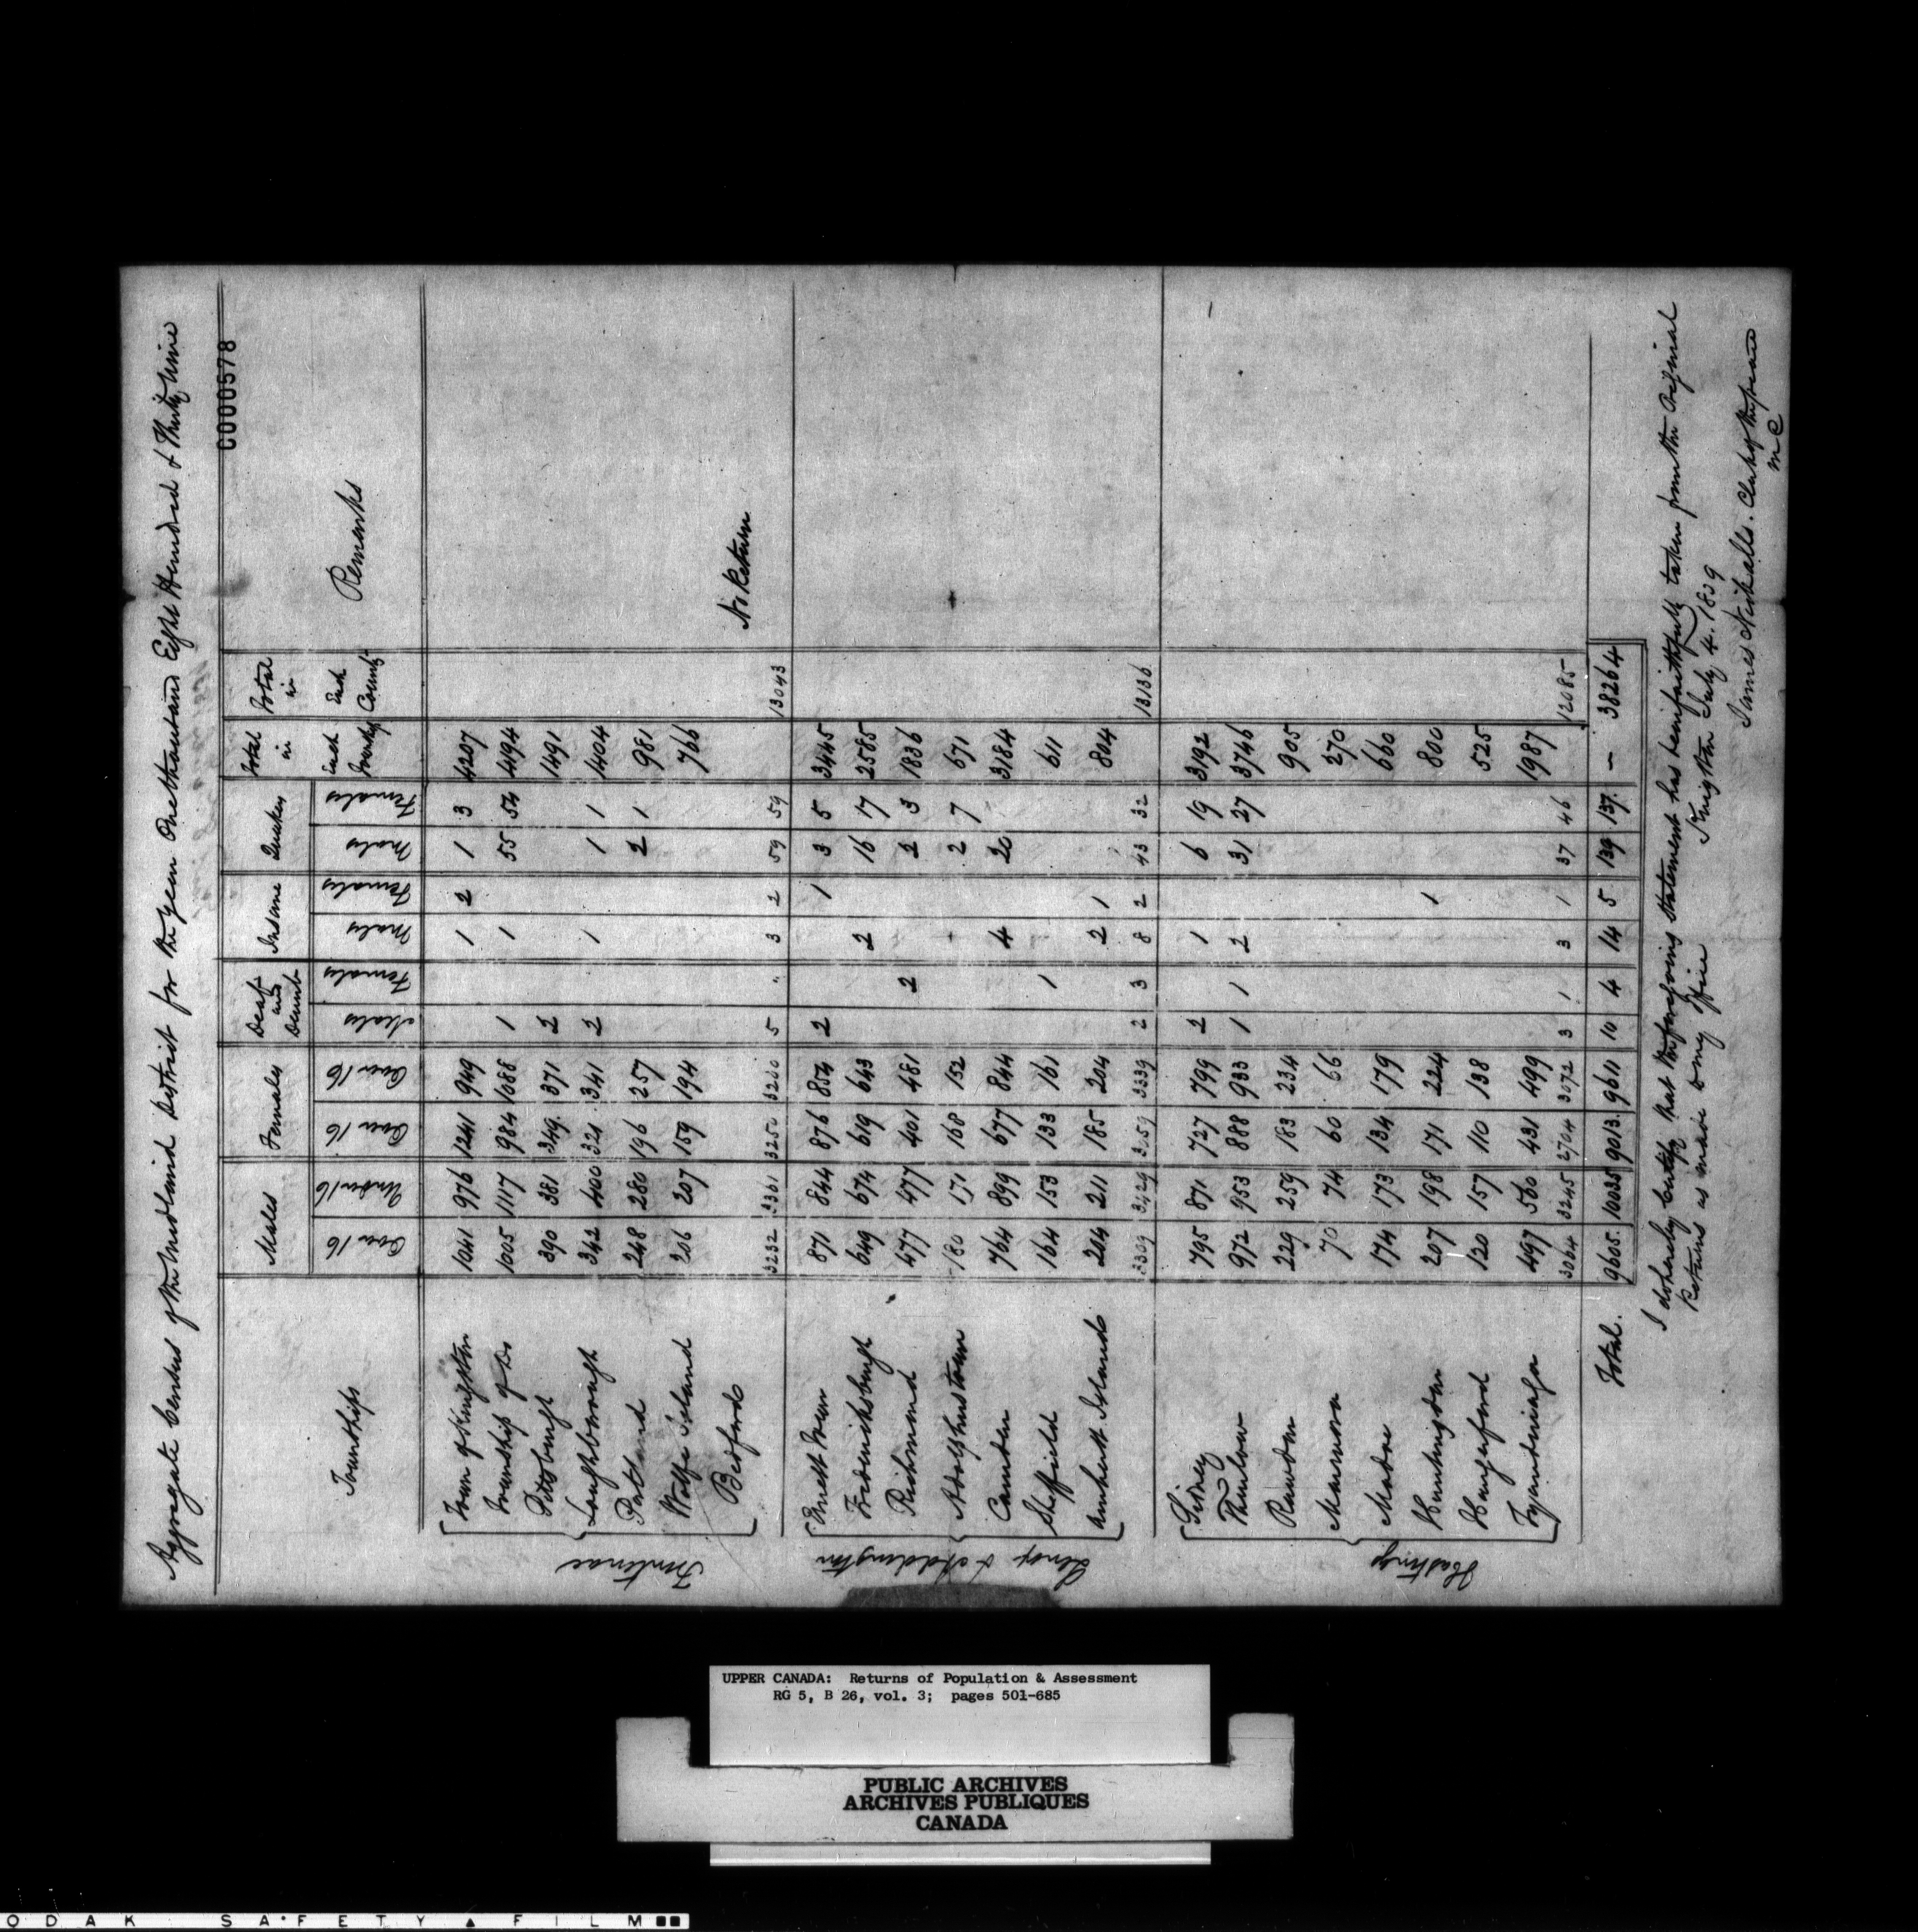 Aggregate Census of the Midland District for the year One thousand Eight Hundred & Thirty Nine
C000578
Townships Males Females Deaf and Dumb Insane Quakers Total in Each Township Total in Each County Remarks
Over 16 Under 16 Over 16 Over 16 Males Females Males Females Males Females
Frontenac
Town of Kingston 1041 976 1241 949 1 2 1 3 4207
Township of Do 1005 1117 984 1088 1 1 55 54 4494
Pittsburgh 390 381 349 371 2 1491
Loughborough 342 400 321 341 2 1 1 1 1404
Portland 248 280 196 257 2 1 981
Wolfe Island 206 207 159 194 766
Bedford No Return
3232 3361 3250 3200 5 " 3 2 59 59 13043
Lenox & Addington
Ernest Town 871 844 876 854 2 1 3 5 3445
Fredericksburgh 649 674 619 643 2 16 17 2585
Richmond 477 477 401 481 2 2 3 1836
Adolphustown 180 171 168 152 2 7 671
Camden 764 899 677 844 4 20 3184
Sheffield 164 153 133 161 1 611
Amherst Island 204 211 185 204 2 1 804
3309 3429 3059 3339 2 3 8 2 43 32 13136
Hastings
Sidney 795 871 727 799 2 1 6 19 3192
Thurlow 972 953 888 933 1 1 2 31 27 3746
Rawdon 229 259 183 234 905
Marmora 70 74 60 66 270
Madoc 174 173 134 179 660
Huntingdon 207 198 171 224 1 800
Hungerford 120 157 110 138 525
Tyendinaga 497 560 431 499 1987
3064 3245 2704 3072 3 1 3 1 37 46 12085
Total. 9605. 10035 9013. 9611 10 4 14 5 139 137. — 38264
I do hereby certify that the foregoing statement has been faithfully taken from the Original
Returns as made to my Office
Kingston July 4. 1839
James Nickalls. Clerk of the peace
M D
UPPER CANADA: Returns of Population & Assessment
RG 5, B 26, vol. 3; pages 501-685
PUBLIC ARCHIVES
ARCHIVES PUBLIQUES
CANADA
ODAK SAFETY FILM